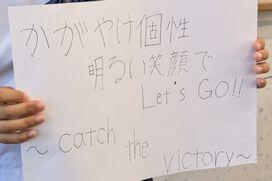 かがやけ個性
明るい笑顔で
Let's GO!!
～catch the victory～